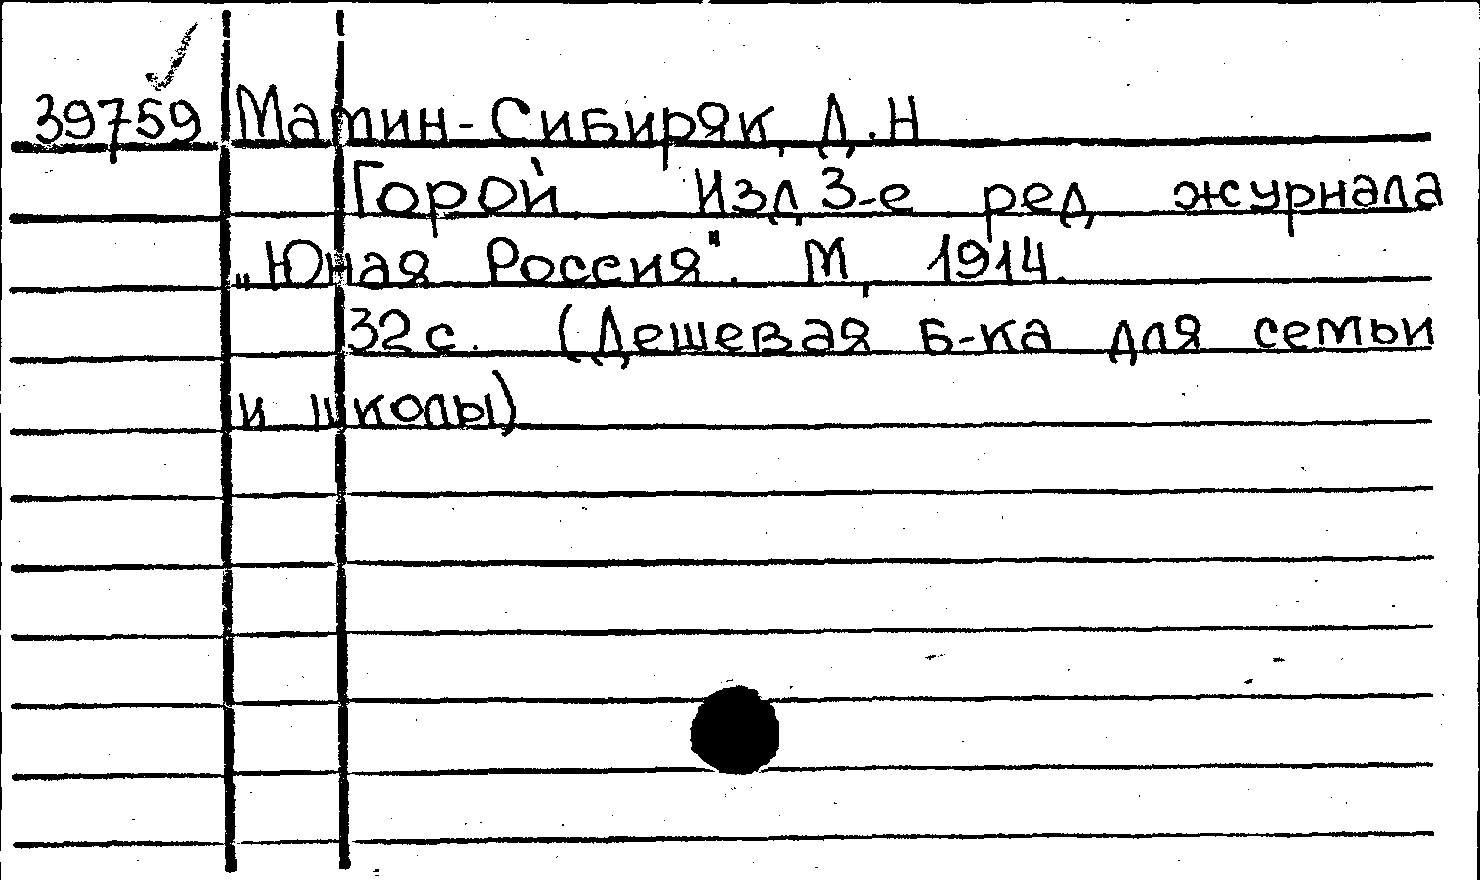 39759 Мамин-Сибиряк, Д.Н
Горой Изд. 3-е ред журнала
„Юная Россия". М, 1914.
32 с. (Дешевая б-ка для семьи
и школы)